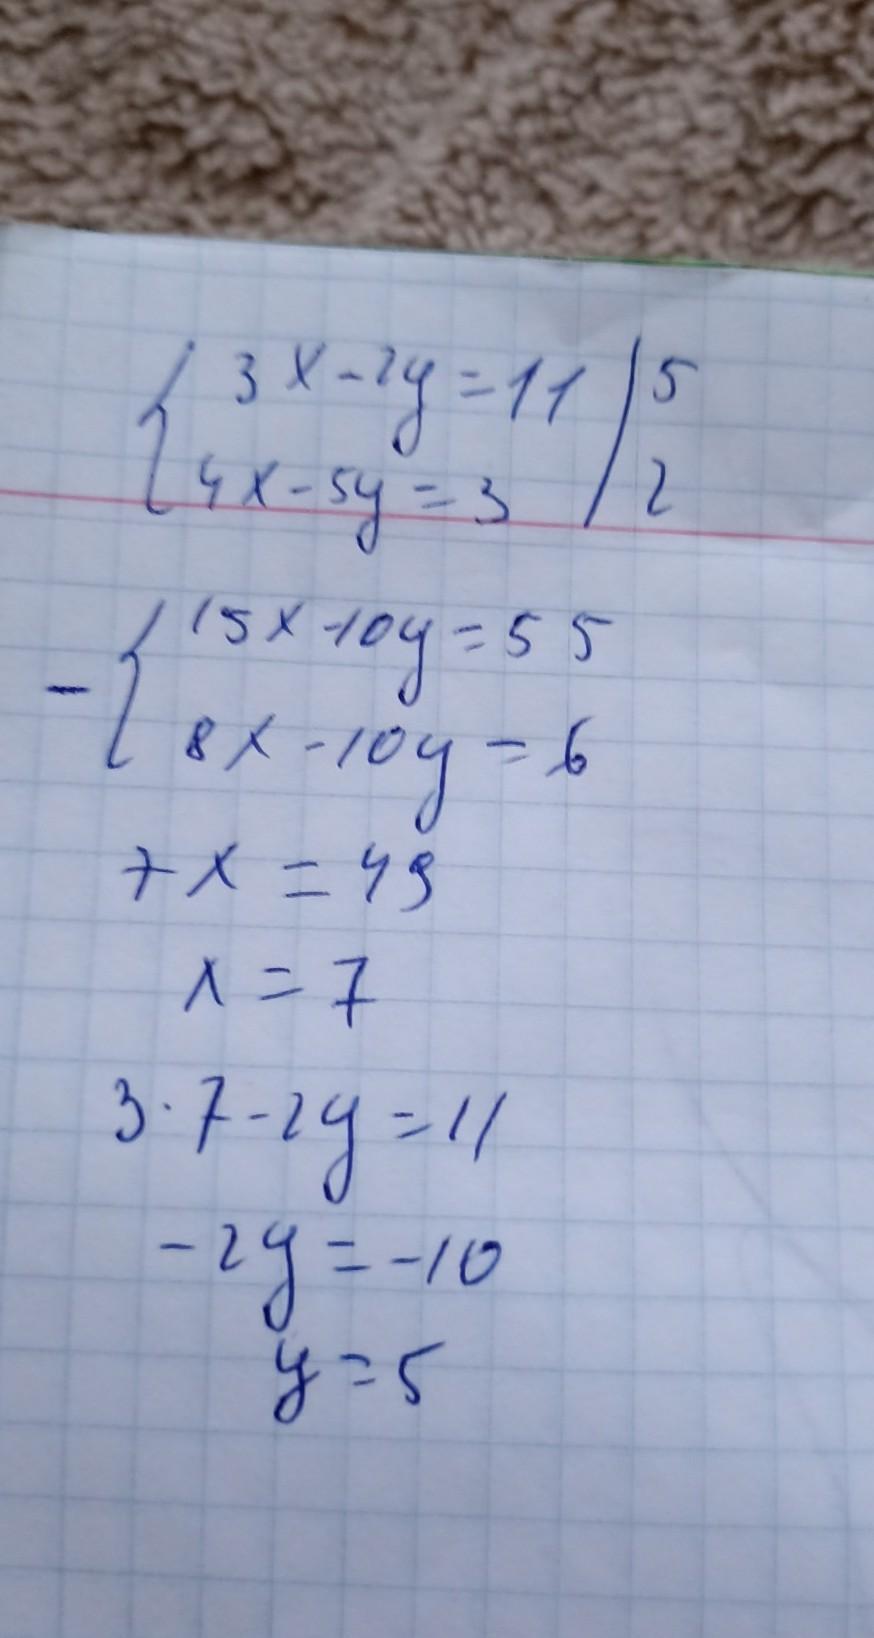 3x-2y=11 | 5
4x-5y=3 | 2
15x-10y=55
-
8x-10y=6
7x=49
x=7
3·7-2y=11
-2y=-10
y=5